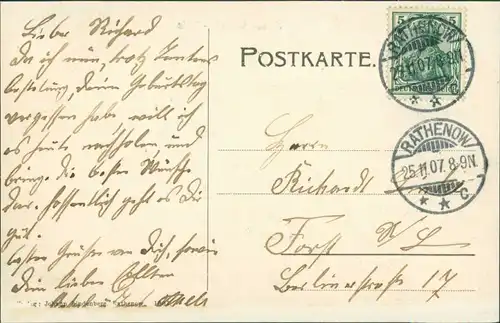 Lieber Richard
Da ich nun, trotz Tantens
Deinen Geburtstag
vergessen habe will ich
es heute nachholen und
bringe die besten Wünsche
dar. Hoffentlich geht es Dir
gut.
besten Grüßen von Dich, sowie
Dein lieben Eltern
POSTKARTE.
5 5
RATHENOW
25.11.07. 8-9N.
* * c
RATHENOW
25.11.07. 8-9N.
* * c
Herrn
Richardt
Forst N/L
Berlinerstraße 17